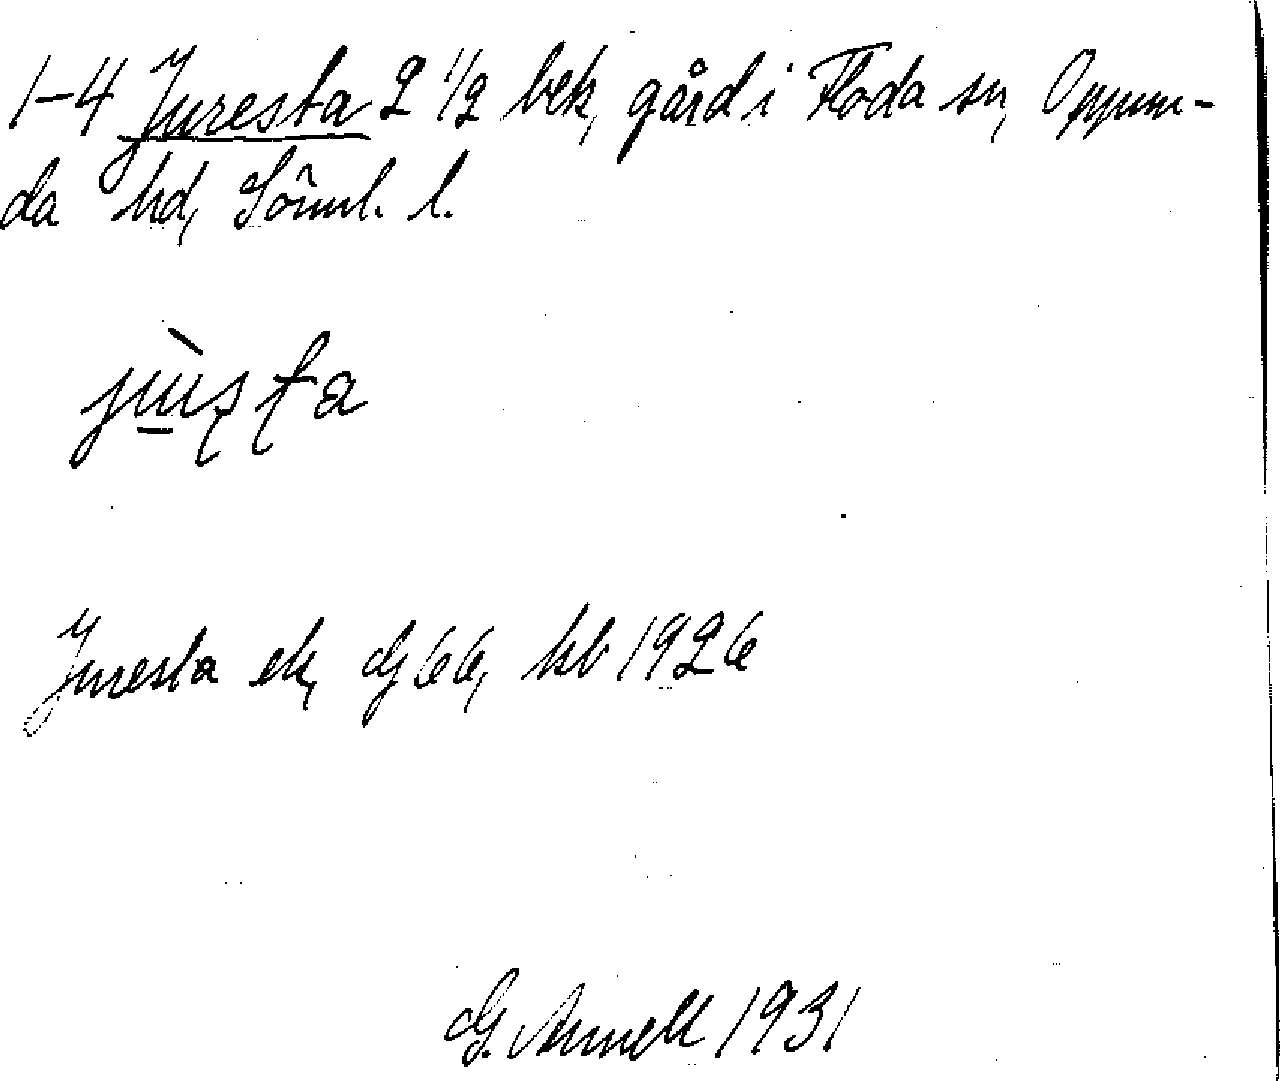 1-4 Juresta 2 1/2 bek, gård i Floda sn, Oppun-
da hd, Söml. l.
jùṣṭa
Juresta ek, GG 66, kb 1926
G. Annell 1931